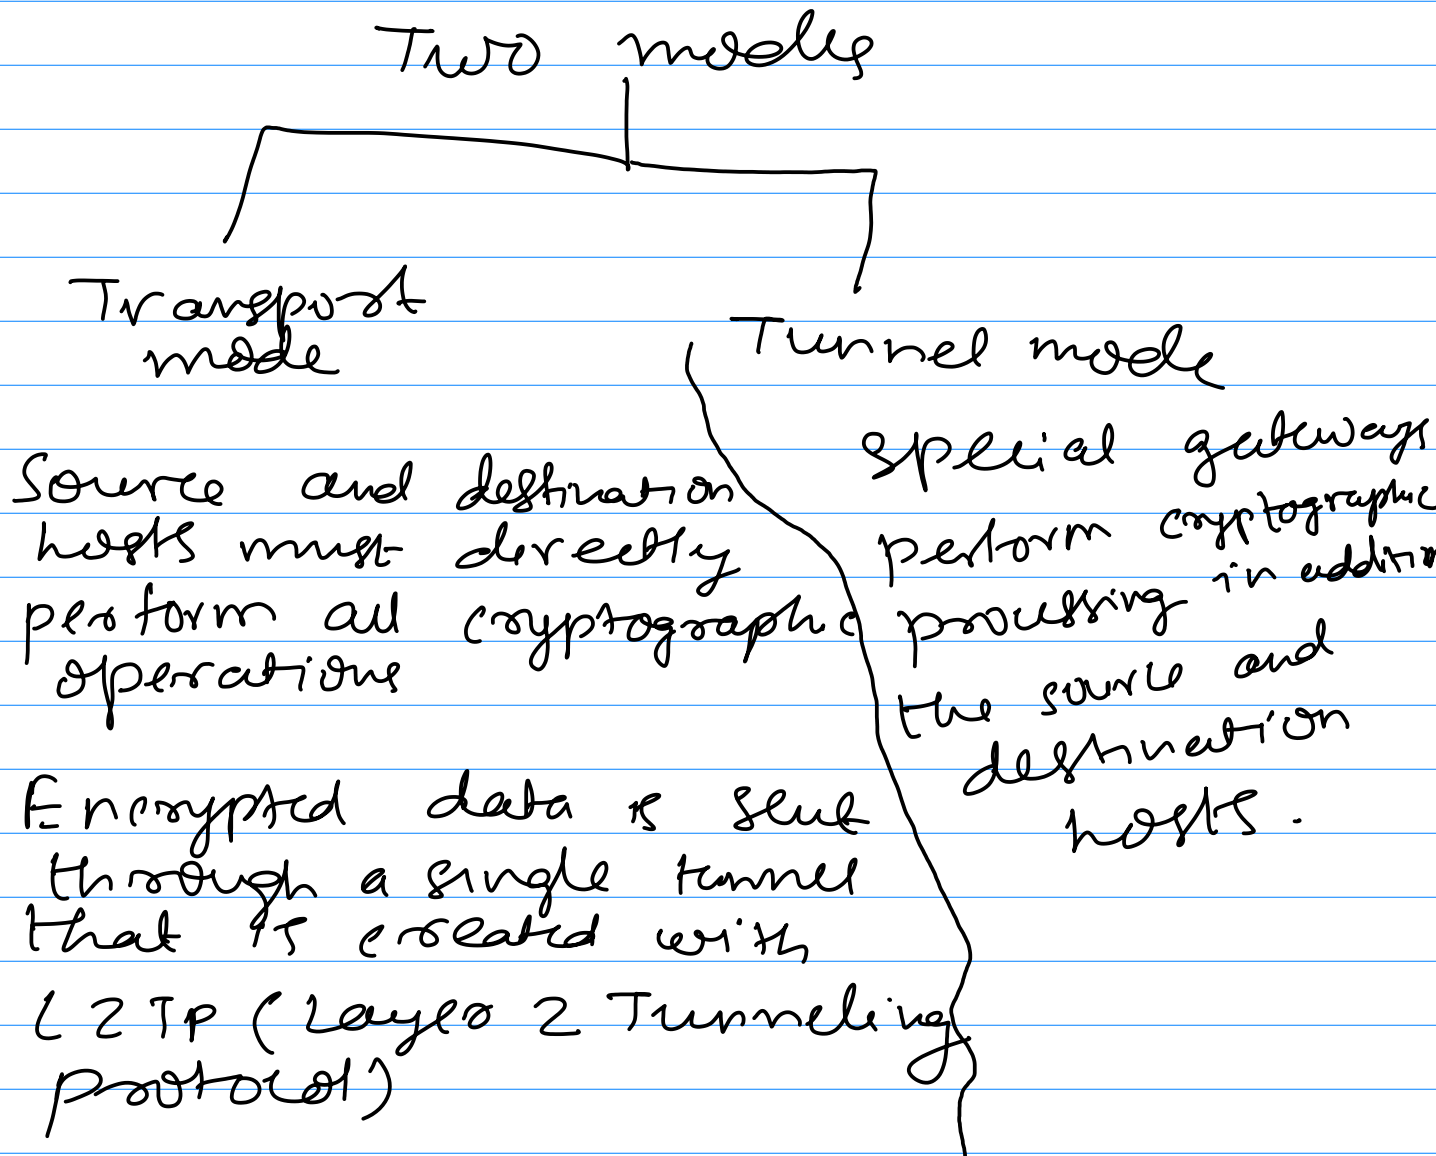 Two modes
Transport
mode
Source and destination
hosts must directly
perform all cryptographic
operations
Encrypted data is sent
through a single tunnel
that is created with
L2TP (Layer 2 Tunneling
protocol)
Tunnel mode
special gateways
perform cryptographic
processing in addition
the source and
destination
hosts.